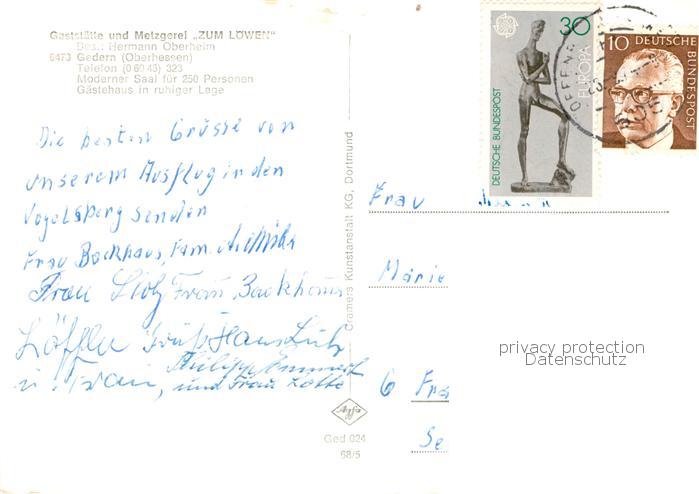 Gaststätte und Metzgerei „ZUM LÖWEN"
Bes.: Hermann Oberheim
6473 Gedern (Oberhessen)
Telefon (0 60 45) 323
Moderner Saal für 250 Personen
Gästehaus in ruhiger Lage
Die besten Grüsse von
unserem Ausflug in den
Vogelsberg senden
Frau Backhaus, Fam.
Frau Stolz Frau Backhaus
Löffler Gruß Hans Lutz
u. Frau, Philipp Emmert
und Frau Lotte
Cramers Kunstanstalt KG, Dortmund
Agfa
Ged 024
68/5
30
EUROPA
DEUTSCHE BUNDESPOST
10 DEUTSCHE
BUNDESPOST
OFFENB
Frau
Marie
6 Fra
Se
privacy protection
Datenschutz